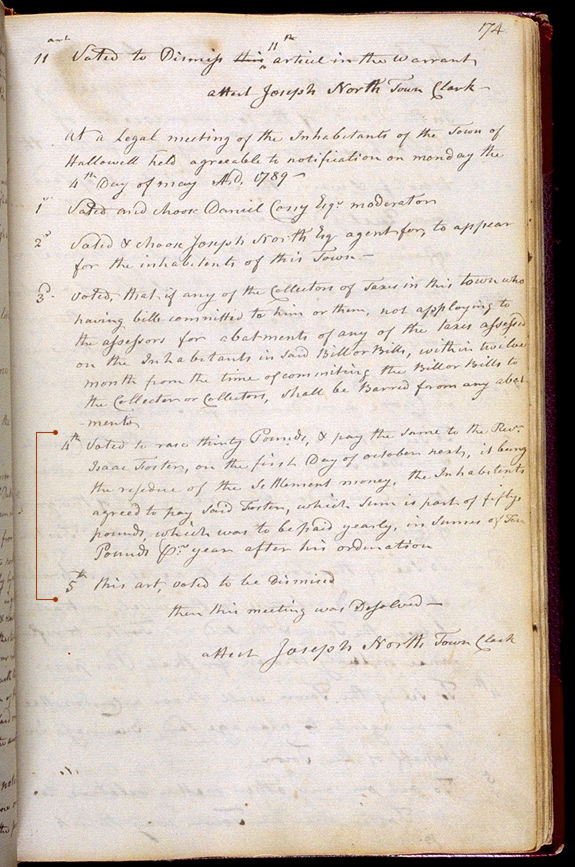 174
art
11 Voted to Dismiss this 11th articel in the Warrant,
attest Joseph North Town Clark
At a Legal meeting of the Inhabitants of the Town of
Hallowell held agreeable to notification on monday the
4th Day of may A.D. 1789
1st Voted and choose Daniel Cony Esqr moderator
2d Voted & choose Joseph North Esq agent for, to appear
for the inhabitents of this Town
3d Voted, that if any of the Collectors of Taxes in this town who
having bills committed to him or them, not applying to
the assessors for abatments of any of the taxes assessed
on the Inhabitants in said Bill or Bills, within twelve
month from the time of commiting the Bill or Bills to
the Collector or Collectors, shall be Barred from any abat
ments
4th Voted to rase thirty Pounds, & pay the same to the Revr
Isaac Foster, on the first Day of october next, it being
the resedue of the Settlement money, the Inhabitents
agreed to pay said Foster, which sum is part of fifty
pounds, which was to be paid yearly, in sumes of Ten
Pounds pr year after his ordination
5th this art, voted to be Dismised
then this meeting was Desolved
attest Joseph North Town Clark